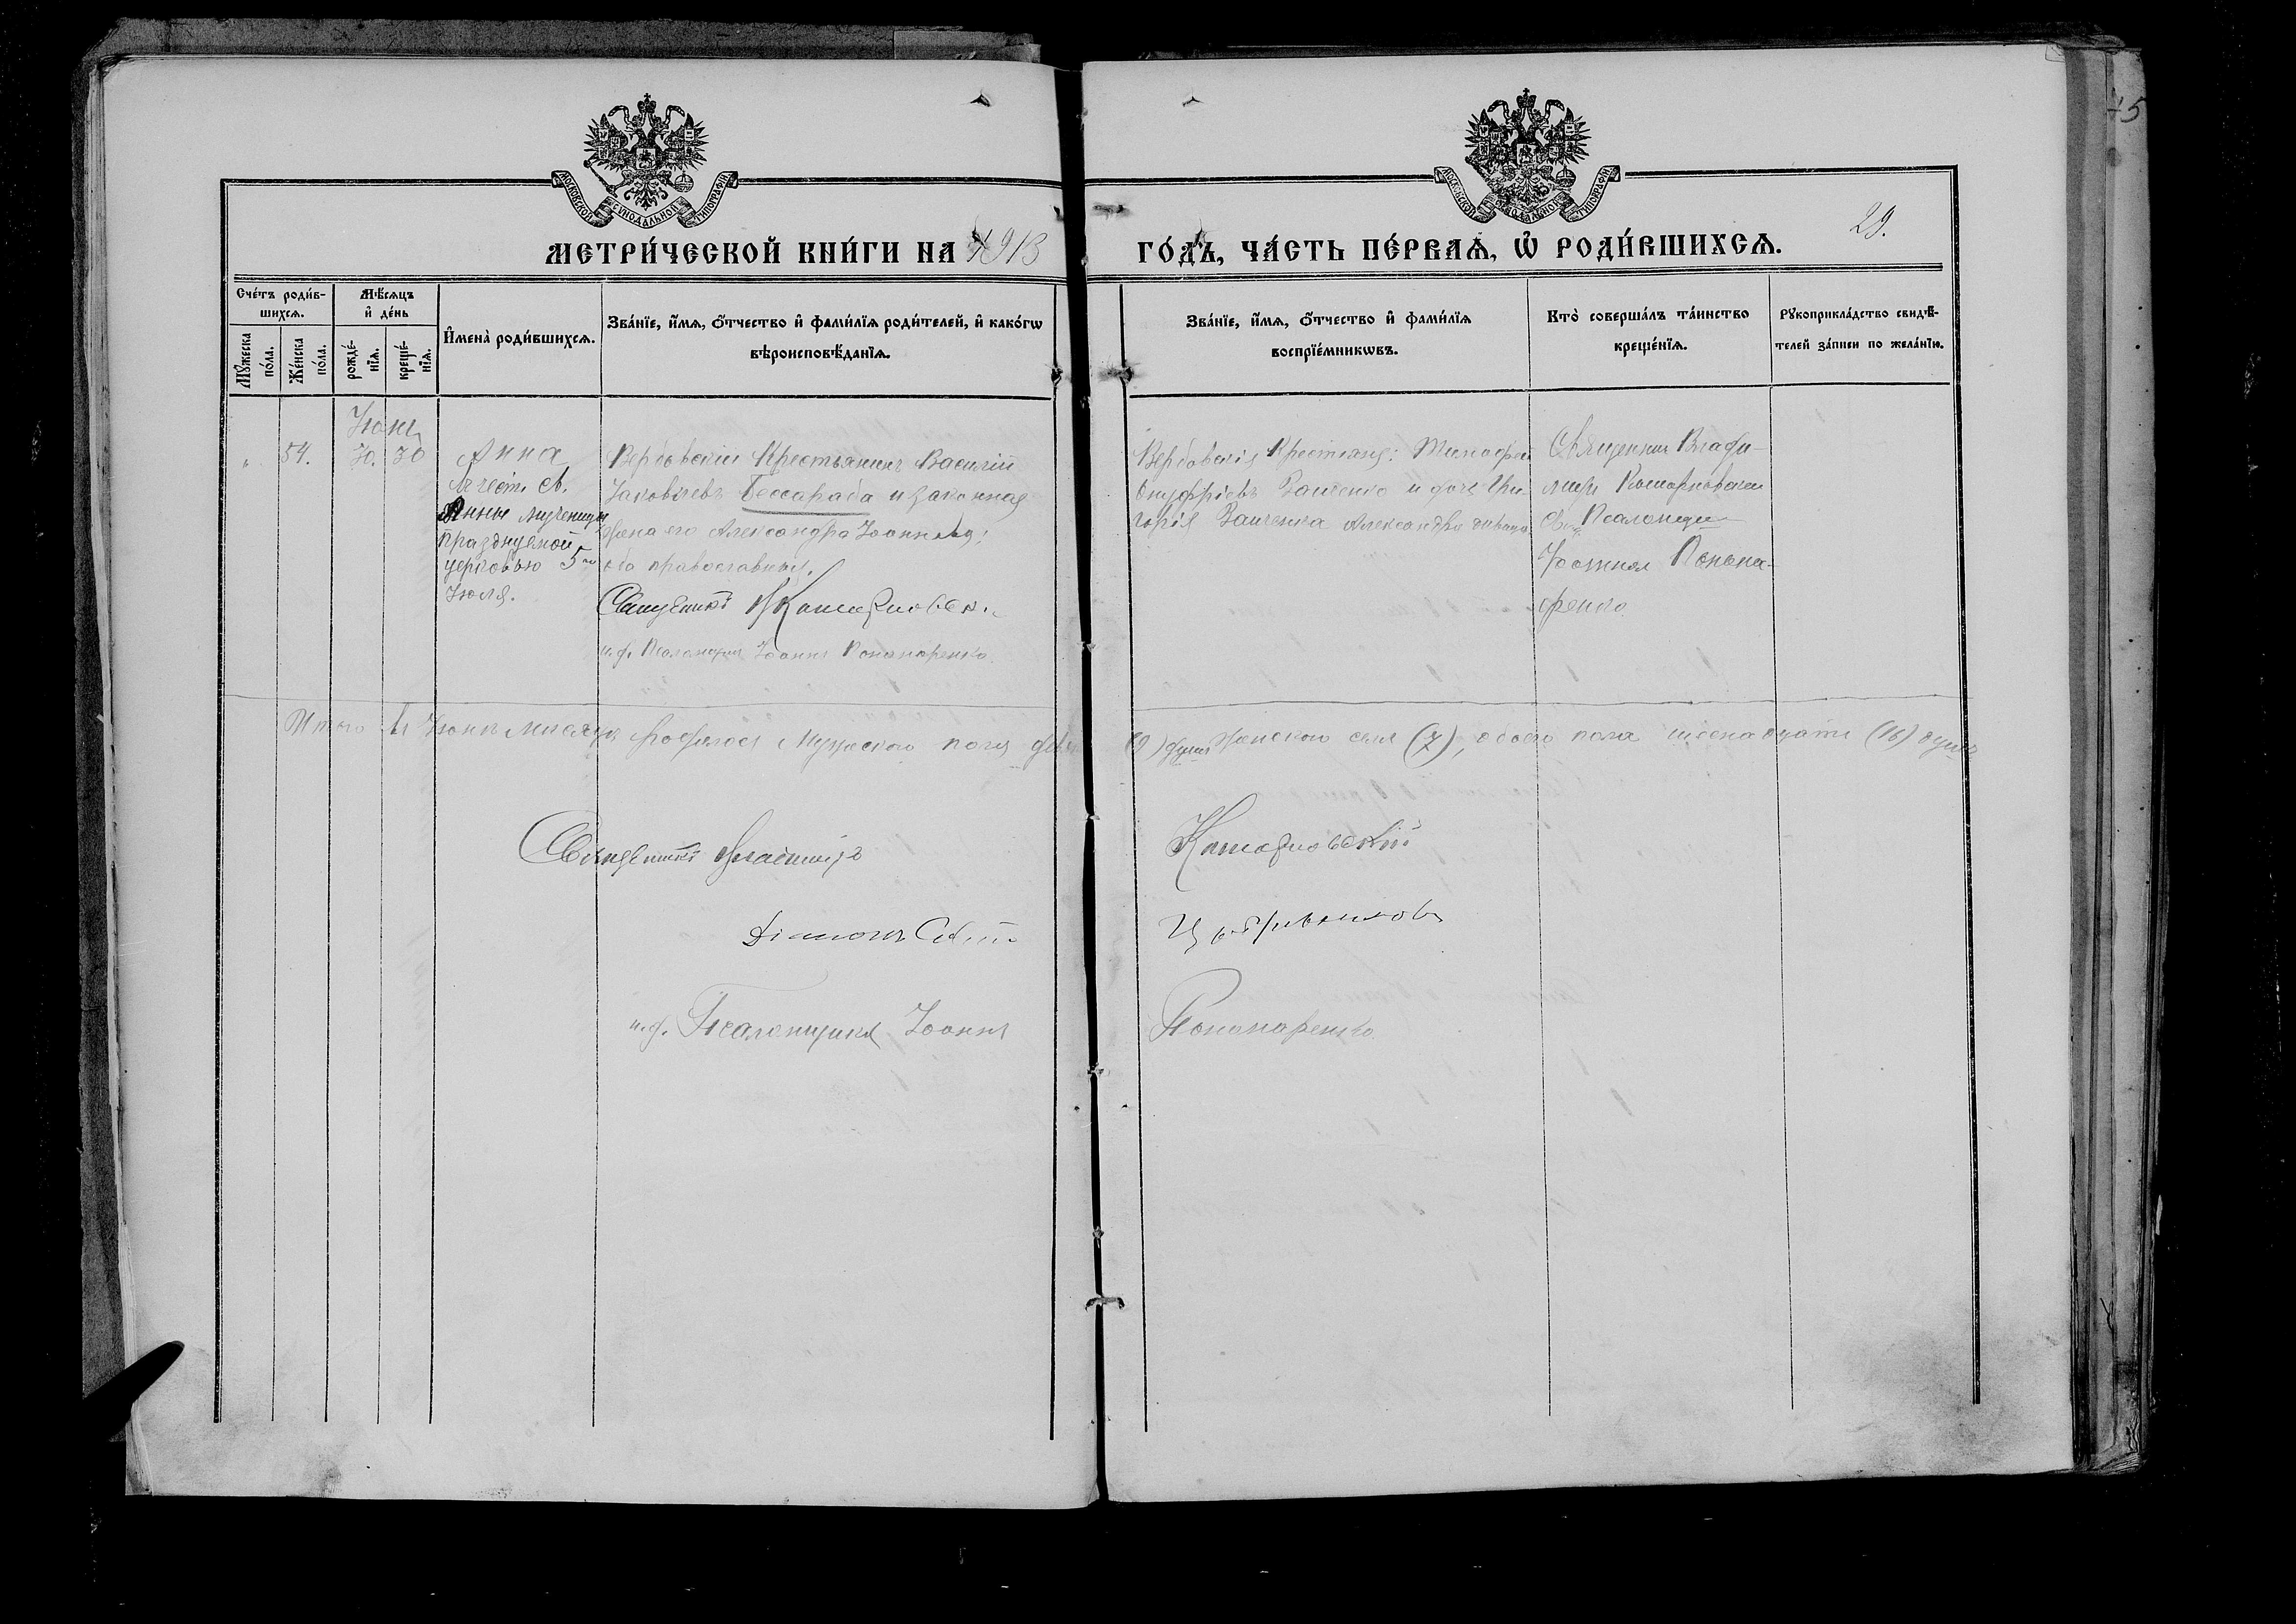 МОСКОВСКОЙ СѴНОДАЛЬНОЙ ТИПОГРАФІИ
МОСКОВСКОЙ СѴНОДАЛЬНОЙ ТИПОГРАФІИ
29.
МЕТРИ́ЧЕСКОЙ КНИ́ГИ НА 1913
ГО́ДЪ, ЧА́СТЬ ПЕ́РВАѦ, Ѡ҆ РОДИ́ВШИХСѦ.
Сче́тъ роди́в-
шихсѧ.
Мѣ́сѧцъ
и҆ де́нь
Мꙋ́жеска
по́ла.
Же́нска
по́ла.
рожде́-
нїѧ.
креще́-
нїѧ.
И҆мена̀ роди́вшихсѧ.
Зва́нїе, и҆́мѧ, ѻ҆́тчество и҆ фами́лїѧ роди́телей, и҆ како́гѡ
вѣроисповѣ́данїѧ.
Зва́нїе, и҆́мѧ, ѻ҆́тчество и҆ фами́лїѧ
воспрїе́мникѡвъ.
Кто̀ соверша́лъ та́инство
креще́нїѧ.
Рꙋкоприкла́дство свидѣ́-
телей за́писи по жела́нїю.
Іюнь
" 54. 30. 30
Анна
въ честь св.
Анны мученицы
празднуемой
церковью 5го
Іюля.
Вербовскій Крестьянинъ Василій
Іаковлевъ Бессараба и законная
жена его Александра Іоаннова;
оба православные.
Священникъ В Комарновск
и. ф. Псаломщика Іоаннъ Пономаренко
Вербовскіе Крестьяне: Тимофей
Онуфріевъ Заиченко и дочь Гри-
горія Заиченка Александра дивица
Священникъ Влади-
миръ Комарновскій
Псаломщи
Іоанномъ Понома-
ренко
Итого въ Іюнѣ мѣсяцѣ родилось Мужескаго пола девять
(9) душъ Женскаго семь (7), обоего пола шестнадцать (16) душъ
Священникъ Владиміръ Комарновскій
Діаконъ
и. ф. Псаломщика Іоаннъ Пономаренко